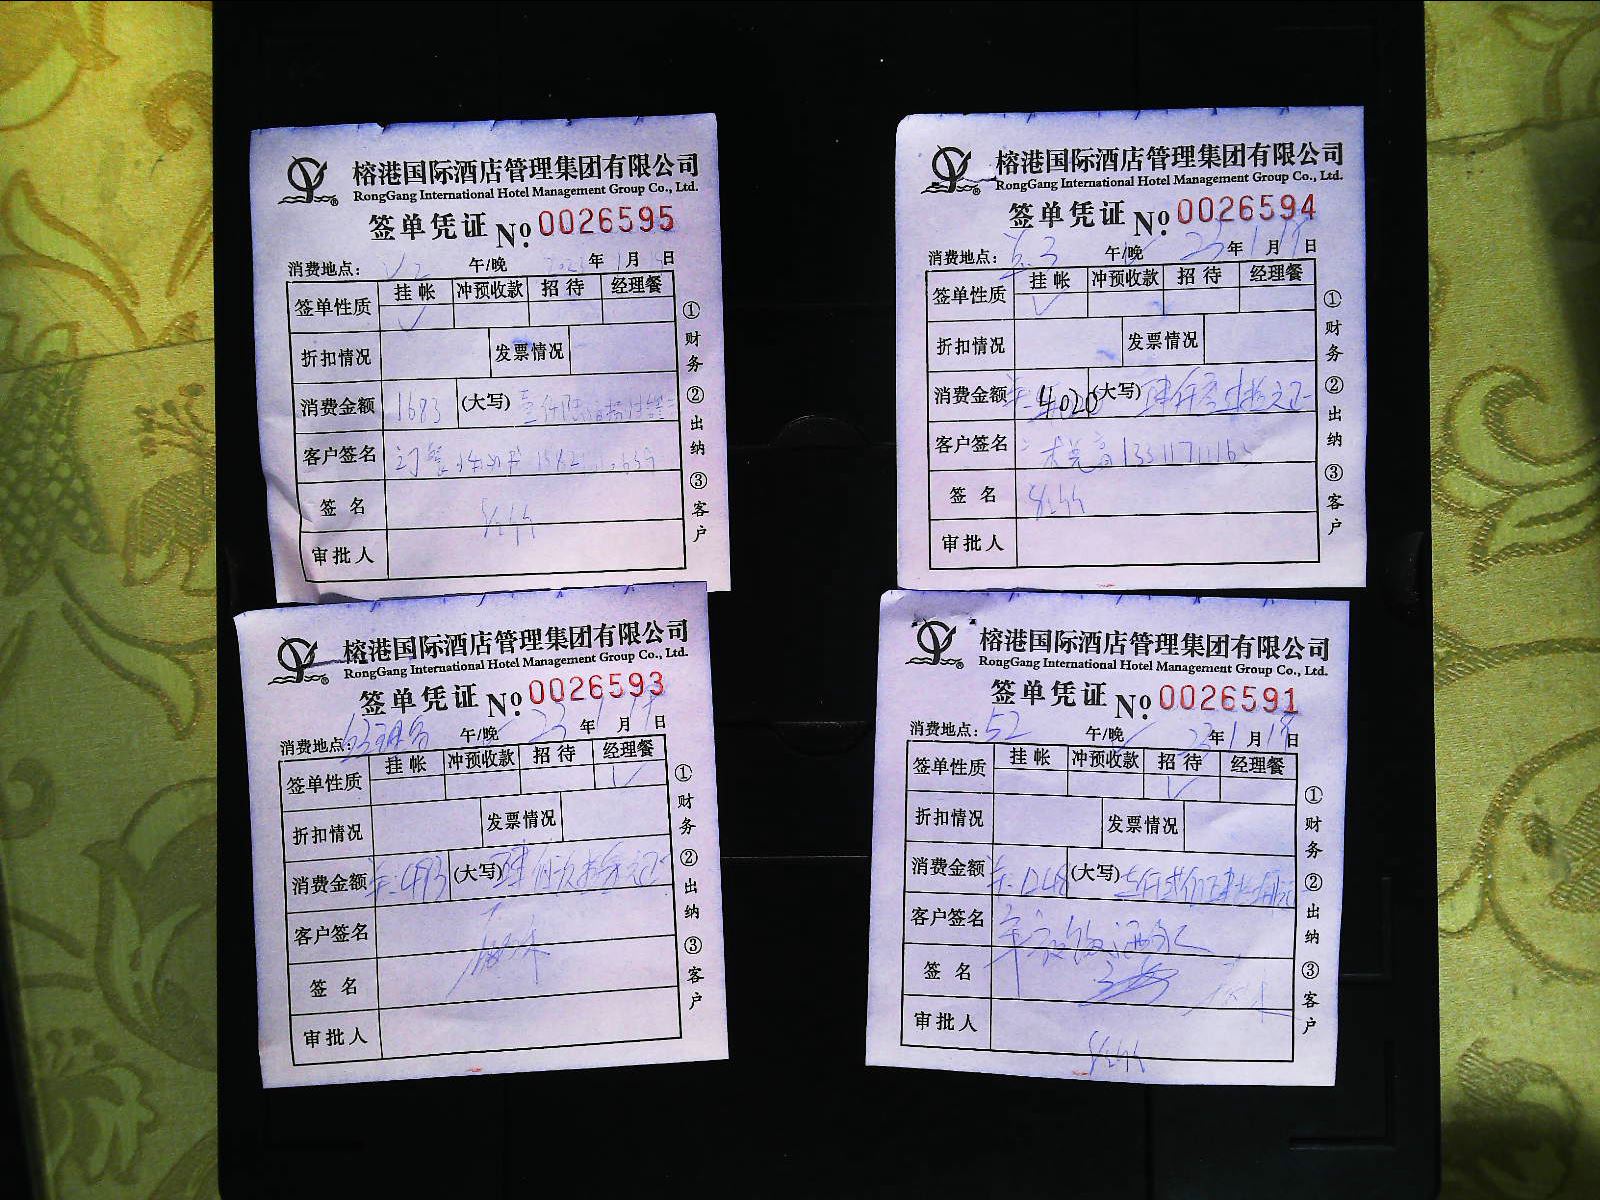 榕港国际酒店管理集团有限公司
RongGang International Hotel Management Group Co., Ltd.
签单凭证 No. 0026595
消费地点： 午/晚 2023年1月 日
签单性质 挂帐 冲预收款 招待 经理餐
✓
折扣情况 发票情况
消费金额 1683 (大写)
客户签名
签名
审批人
①财务 ②出纳 ③客户
榕港国际酒店管理集团有限公司
RongGang International Hotel Management Group Co., Ltd.
签单凭证 No. 0026594
消费地点： 午/晚 23年1月 日
签单性质 挂帐 冲预收款 招待 经理餐
✓
折扣情况 发票情况
消费金额 4020 (大写) 肆仟零贰拾元正
客户签名
签名
审批人
①财务 ②出纳 ③客户
榕港国际酒店管理集团有限公司
RongGang International Hotel Management Group Co., Ltd.
签单凭证 No. 0026593
消费地点： 午/晚 23年1月 日
签单性质 挂帐 冲预收款 招待 经理餐
✓
折扣情况 发票情况
消费金额 (大写)
客户签名
签名
审批人
①财务 ②出纳 ③客户
榕港国际酒店管理集团有限公司
RongGang International Hotel Management Group Co., Ltd.
签单凭证 No. 0026591
消费地点：52 午/晚 23年1月 日
签单性质 挂帐 冲预收款 招待 经理餐
✓
折扣情况 发票情况
消费金额 1248 (大写) 壹仟贰佰肆拾捌元
客户签名
签名
审批人
①财务 ②出纳 ③客户